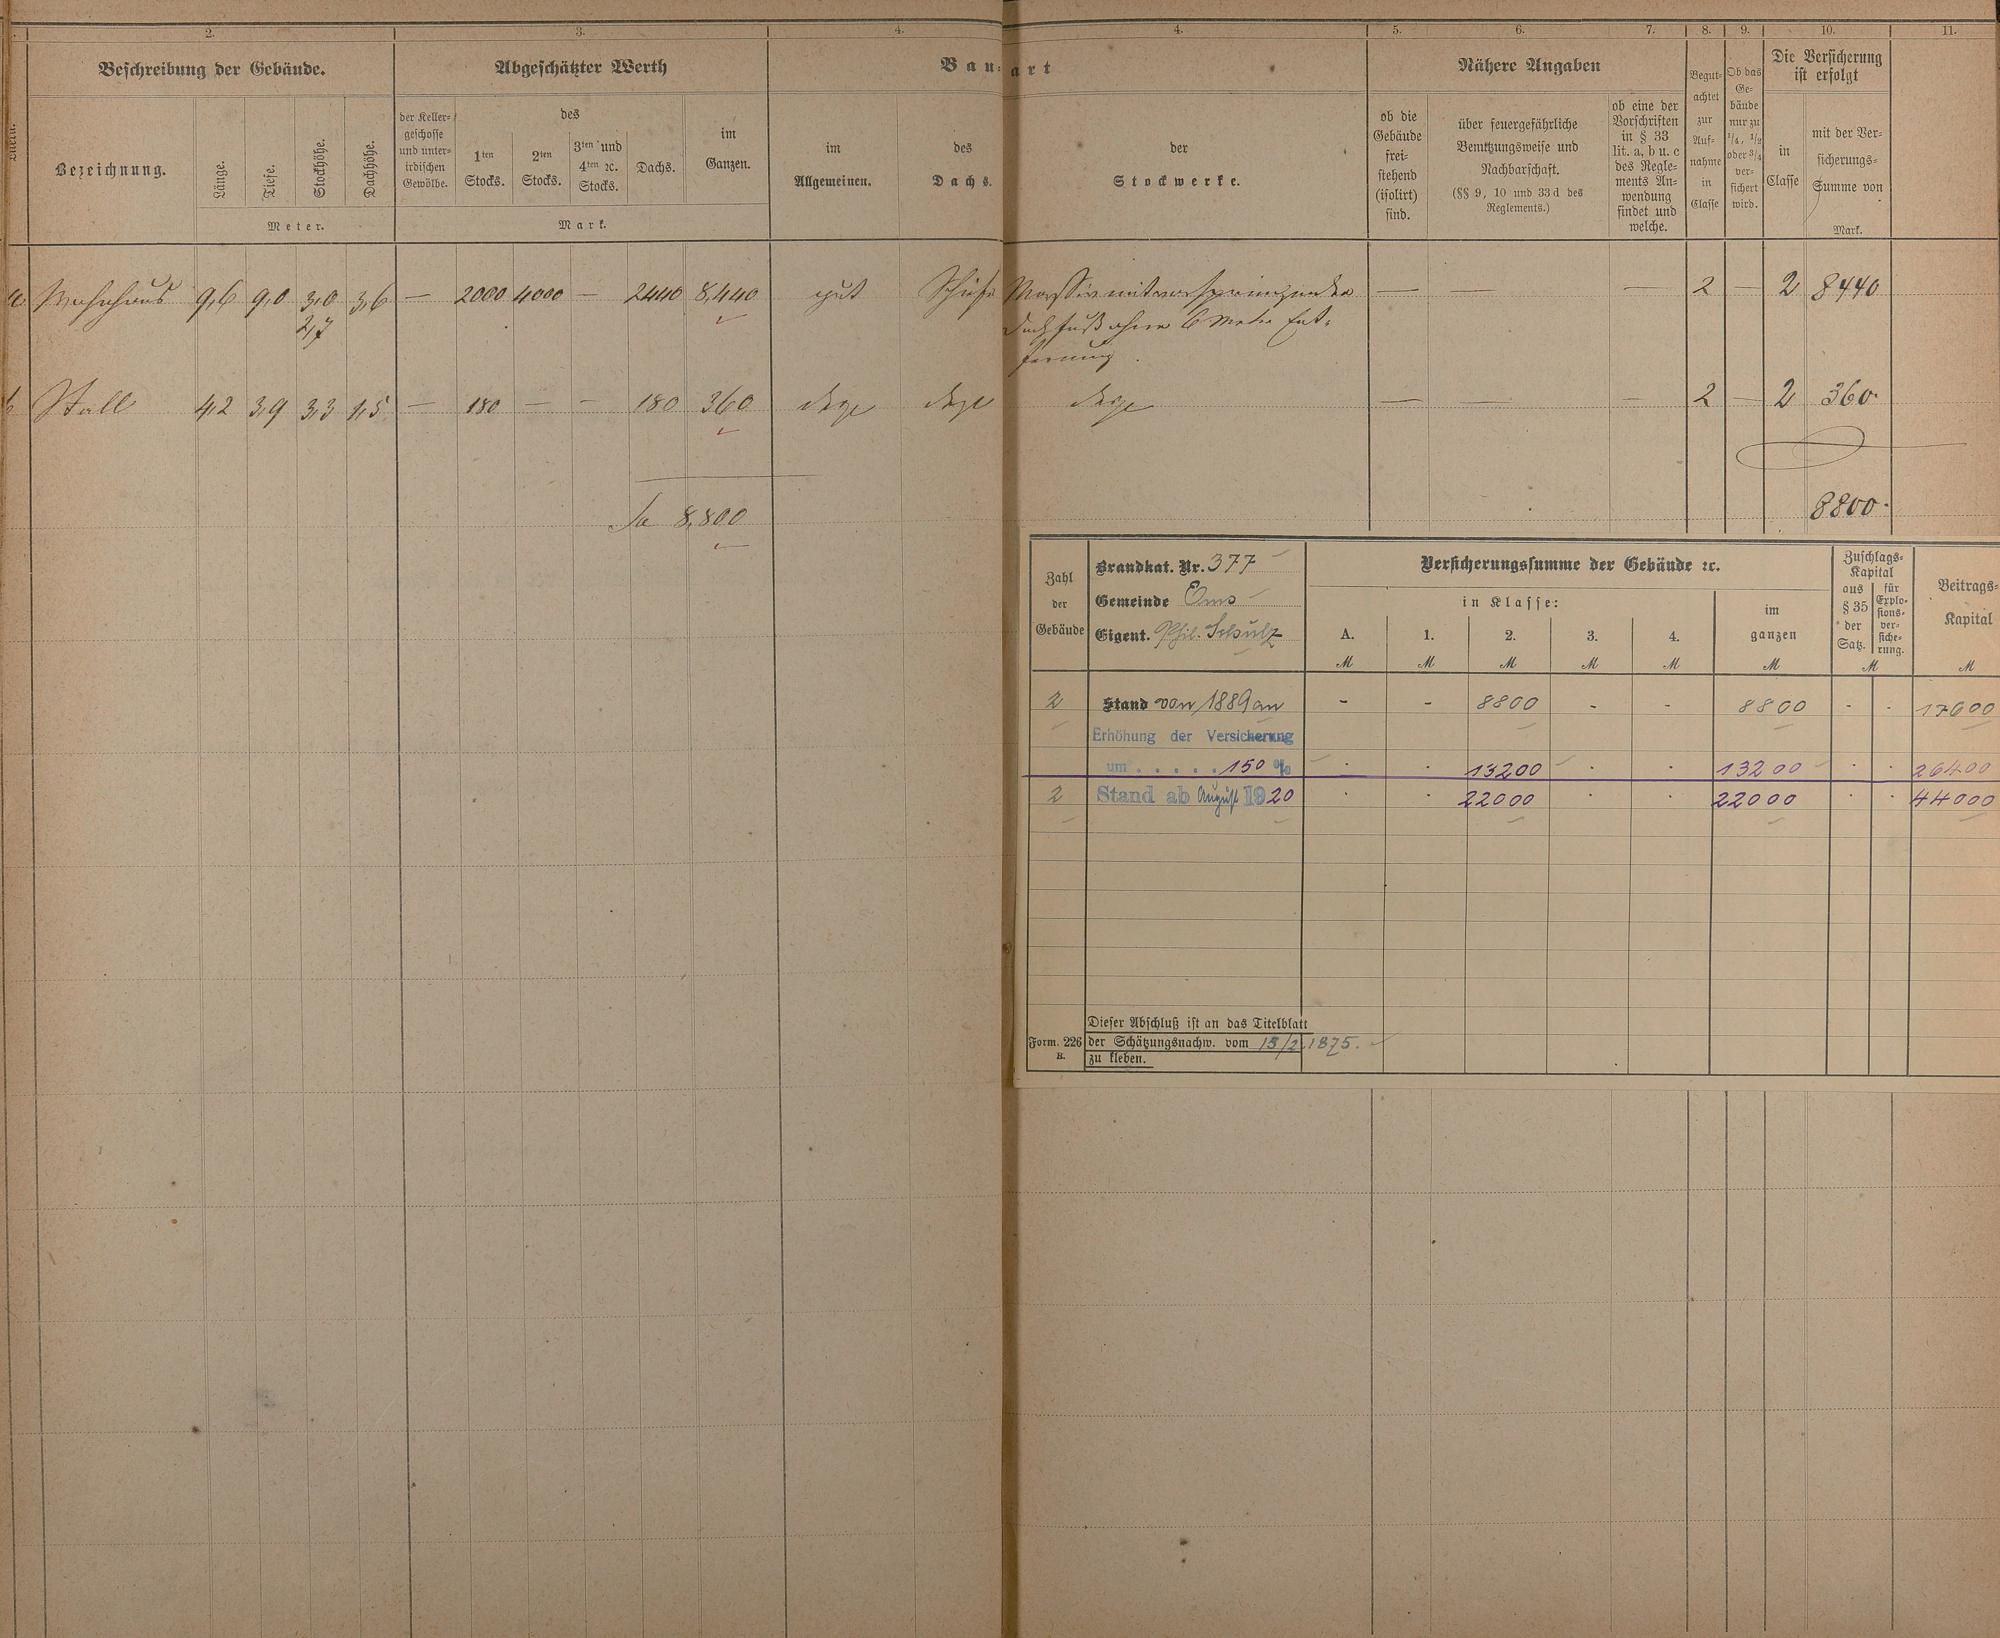 2. 3. 4. 4. 5. 6. 7. 8. 9. 10. 11.
Beschreibung der Gebäude.
Bezeichnung.
Länge.
Tiefe.
Stockhöhe.
Dachhöhe.
Meter.
Abgeschätzter Werth
der Keller-
geschosse
und unter-
irdischen
Gewölbe.
des
1ten
Stocks.
2ten
Stocks.
3ten und
4ten ꝛc.
Stocks.
Dachs.
im
Ganzen.
Mark.
Bau-art
im
Allgemeinen.
des
Dachs.
der
Stockwerke.
Nähere Angaben
ob die
Gebäude
frei-
stehend
(isolirt)
sind.
über feuergefährliche
Benutzungsweise und
Nachbarschaft.
(§§ 9, 10 und 33 d des
Reglements.)
ob eine der
Vorschriften
in § 33
lit. a, b u. c
des Regle-
ments An-
wendung
findet und
welche.
Begut-
achtet
zur
Auf-
nahme
in
Classe
Ob das
Ge-
bäude
nur zu
1/4, 1/2
oder 3/4
ver-
sichert
wird.
Die Versicherung
ist erfolgt
in
Classe
mit der Ver-
sicherungs-
Summe von
Mark.
a. Wohnhaus 9,6 9,0 3,0 3,6 — 2000 4000 — 2440 8,440 gut Schief Massiv mit vorspringendem — — — 2 — 2 8440
2,7 Dachfuß ohne 6 Meter Ent-
fernung.
b Stall 4,2 3,9 3,3 1,5 — 180 — — 180 360 desgl desgl desgl — — — 2 — 2 360
Sa 8,800 8800
Zahl
der
Gebäude
Brandkat. Nr. 377
Gemeinde Ems
Eigent. Phil. Schulz
Versicherungssumme der Gebäude ꝛc.
in Klasse:
A. 1. 2. 3. 4.
im
ganzen
M M M M M M
Zuschlags-
Kapital
aus
§ 35
der
Satz.
für
Explo-
sions-
ver-
siche-
rung.
M
Beitrags-
Kapital
M
2 Stand von 1889 an - - 8800 - - 8800 - - 17600
Erhöhung der Versicherung
um . . . . . 150 % . . 13200 . . 13200 . . 26400
2 Stand ab August 1920 . . 22000 . . 22000 . . 44000
Dieser Abschluß ist an das Titelblatt
Form. 226 der Schätzungsnachw. vom 15/2.1875.
B. zu kleben.